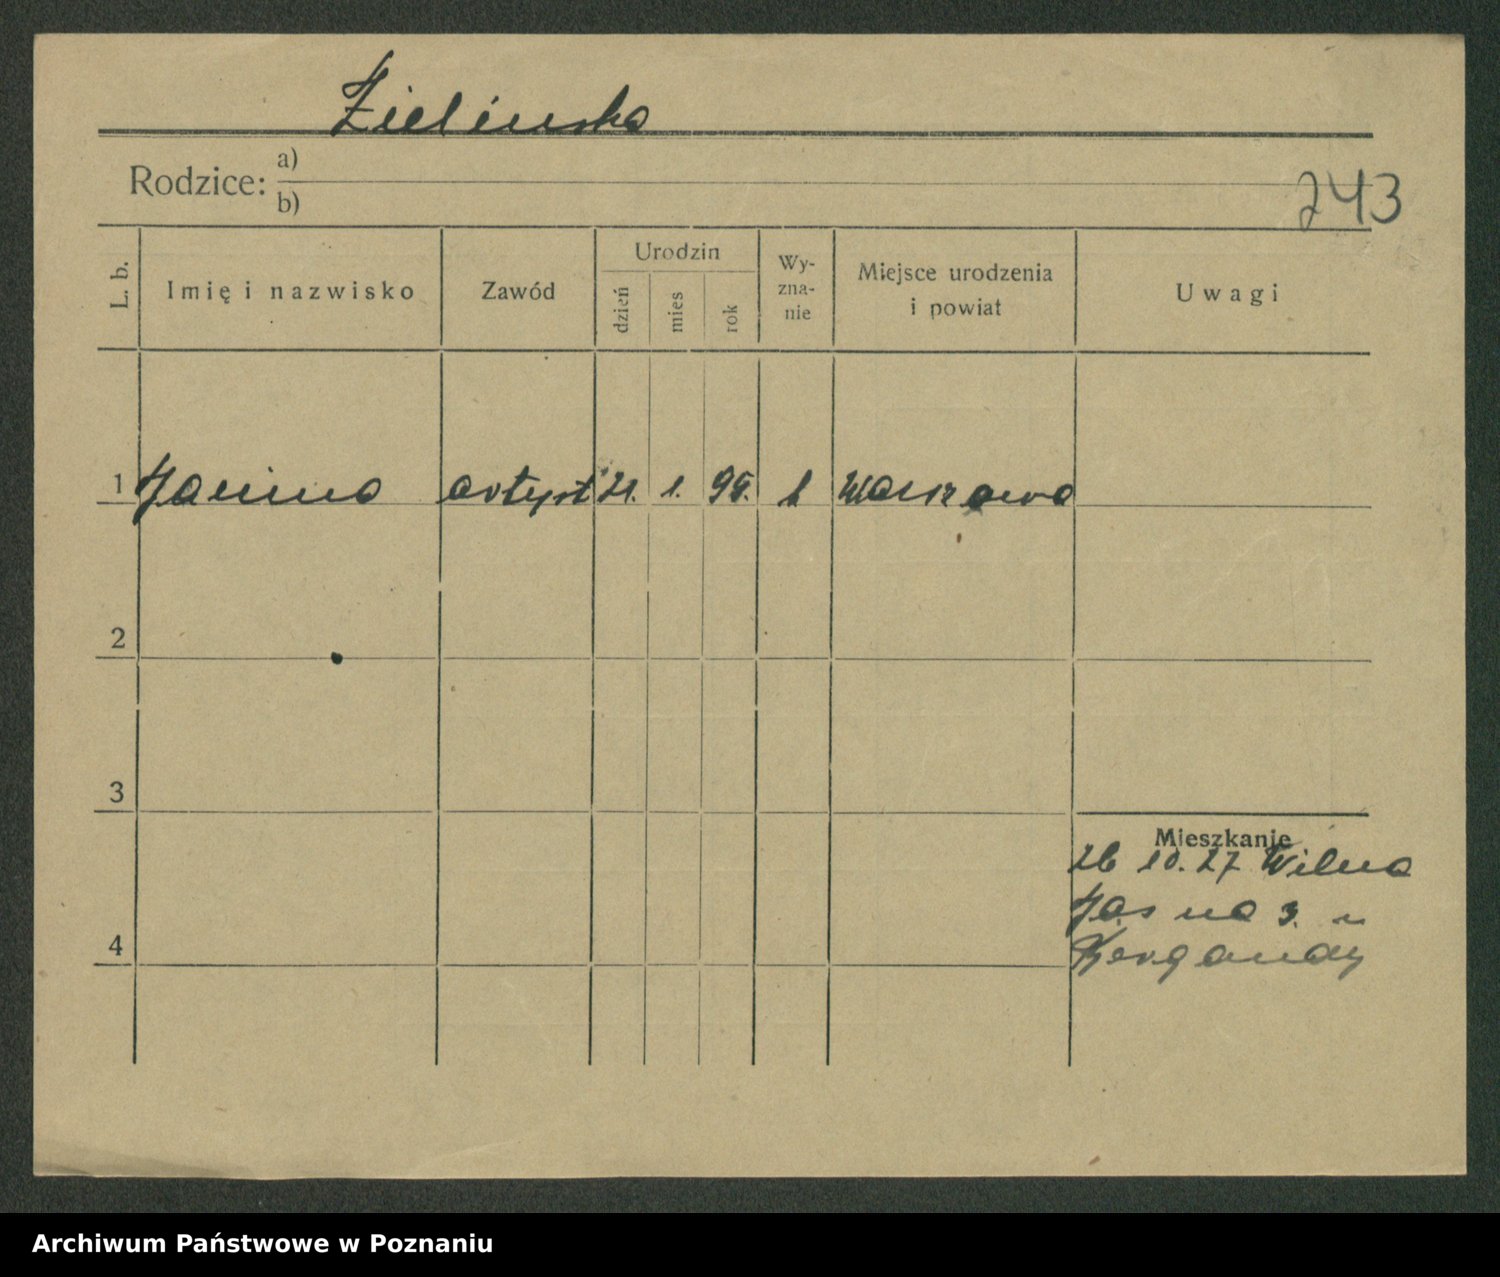 Zielinska
Rodzice: a)
b)
243
L. b.
Imię i nazwisko
Zawód
Urodzin
dzień
mies
rok
Wy-
zna-
nie
Miejsce urodzenia
i powiat
Uwagi
1 Janina artyst 21. 1. Warszawa
2
3
4
Mieszkanie
26 10. 27 Wilna
Jasna 3.
Archiwum Państwowe w Poznaniu